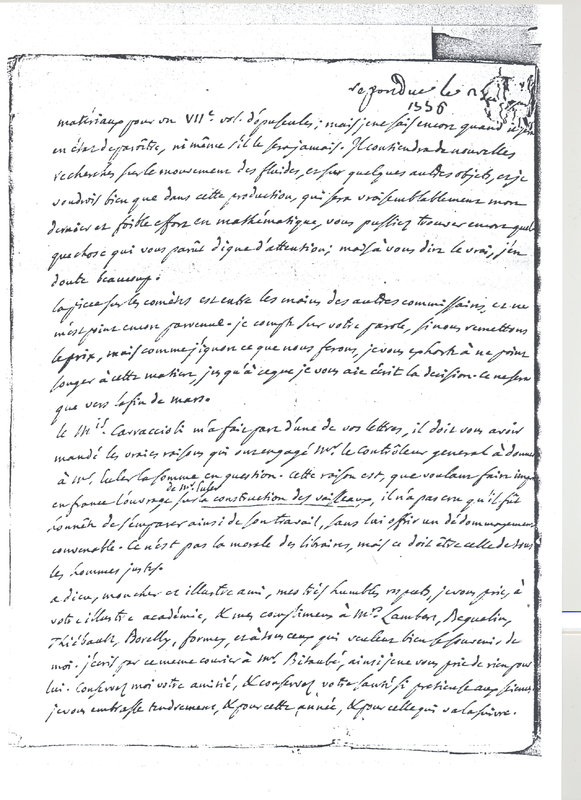 repondue le
1336
matériaux pour un VIIe. vol. d'opuscules; mais je ne sais encore quand il sera
en état de paroître, ni même s'il le sera jamais. Il contiendra de nouvelles
recherches sur le mouvement des fluides, et sur quelques autres objets, et je
voudrois bien que dans cette production, qui sera vraisemblablement mon
dernier et foible effort en mathématique, vous pussiez trouver encore quel
que chose qui vous parût digne d'attention; mais à vous dire le vrai, j'en
doute beaucoup.
la piece sur les cometes est entre les mains des autres commissaires, et ne
m'est point encore parvenue. je compte sur votre parole, si nous remettons
le prix, mais comme j'ignore ce que nous ferons, je vous exhorte à ne point
songer à cette matiere, jusqu'à ce que je vous aie écrit la décision. Ce ne sera
que vers la fin de mars.
le Mis. Carraccioli m'a fait part d'une de vos lettres, il doit vous avoir
mandé les vraies raisons qui ont engagé Mr. le Contrôleur general à donner
à Mr. Euler la somme en question. cette raison est, que voulant faire impr
de Mr. Euler
en france l'ouvrage sur la construction des vaisseaux, il n'a pas cru qu'il fût
honnête de s'emparer ainsi de son travail, sans lui offrir un dédommagement
convenable. Ce n'est pas la morale des libraires, mais ce doit être celle de tous
les hommes justes.
adieu, mon cher et illustre ami, mes tres humbles respects, je vous prie, à
votre illustre académie, & mes complimens à Mrs. Lambert, Beguelin,
Thiébault, Borelly, formey, et à tous ceux qui veulent bien se souvenir de
moi. j'écris par ce meme courier à Mr. Bitaubé, ainsi je ne vous prie de rien pour
lui. Conservez moi votre amitié, & conservez votre santé si precieuse aux sciences.
je vous embrasse tendrement, & pour cette année, & pour celle qui va la suivre.